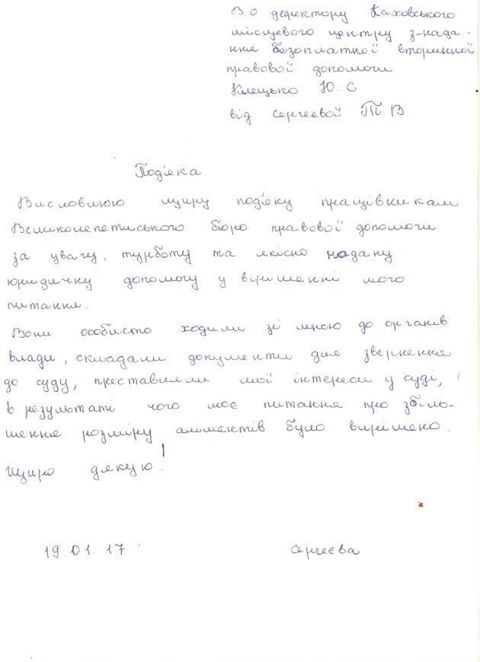 В о деректору Каховського
місцевого центру з надан-
ня безоплатної вторинної
правової допомоги
Клецько Ю. С
від Сергеєвой Т В
Подяка
Висловлюю щиру подяку працівникам
Великолепетиського бюро правової допомоги
за увагу, турботу та якісно надану
юридичну допомогу у вірішенні мого
питання.
Вони особисто ходили зі мною до органів
влади, складали документи для звернення
до суду, преставляли мої інтереси у суді,
в результаті чого моє питання про збіль-
шення розміру аліментів було вирішено.
Щиро дякую!
19.01.17
Сергеєва